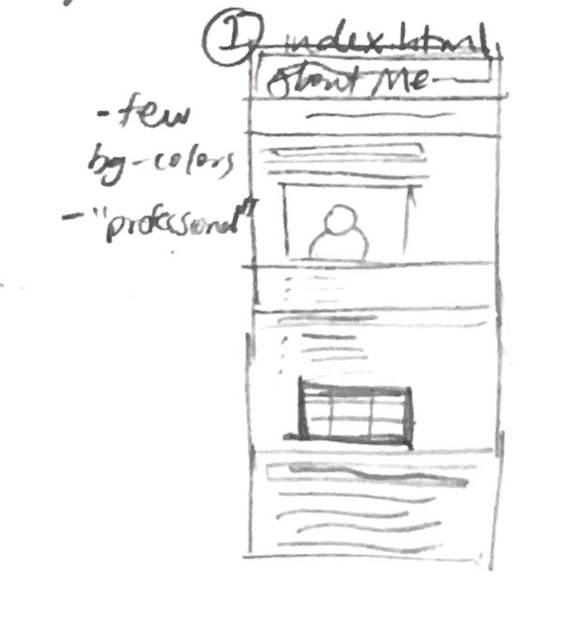 ① index.html
About Me
- few
bg-colors
- "professional"